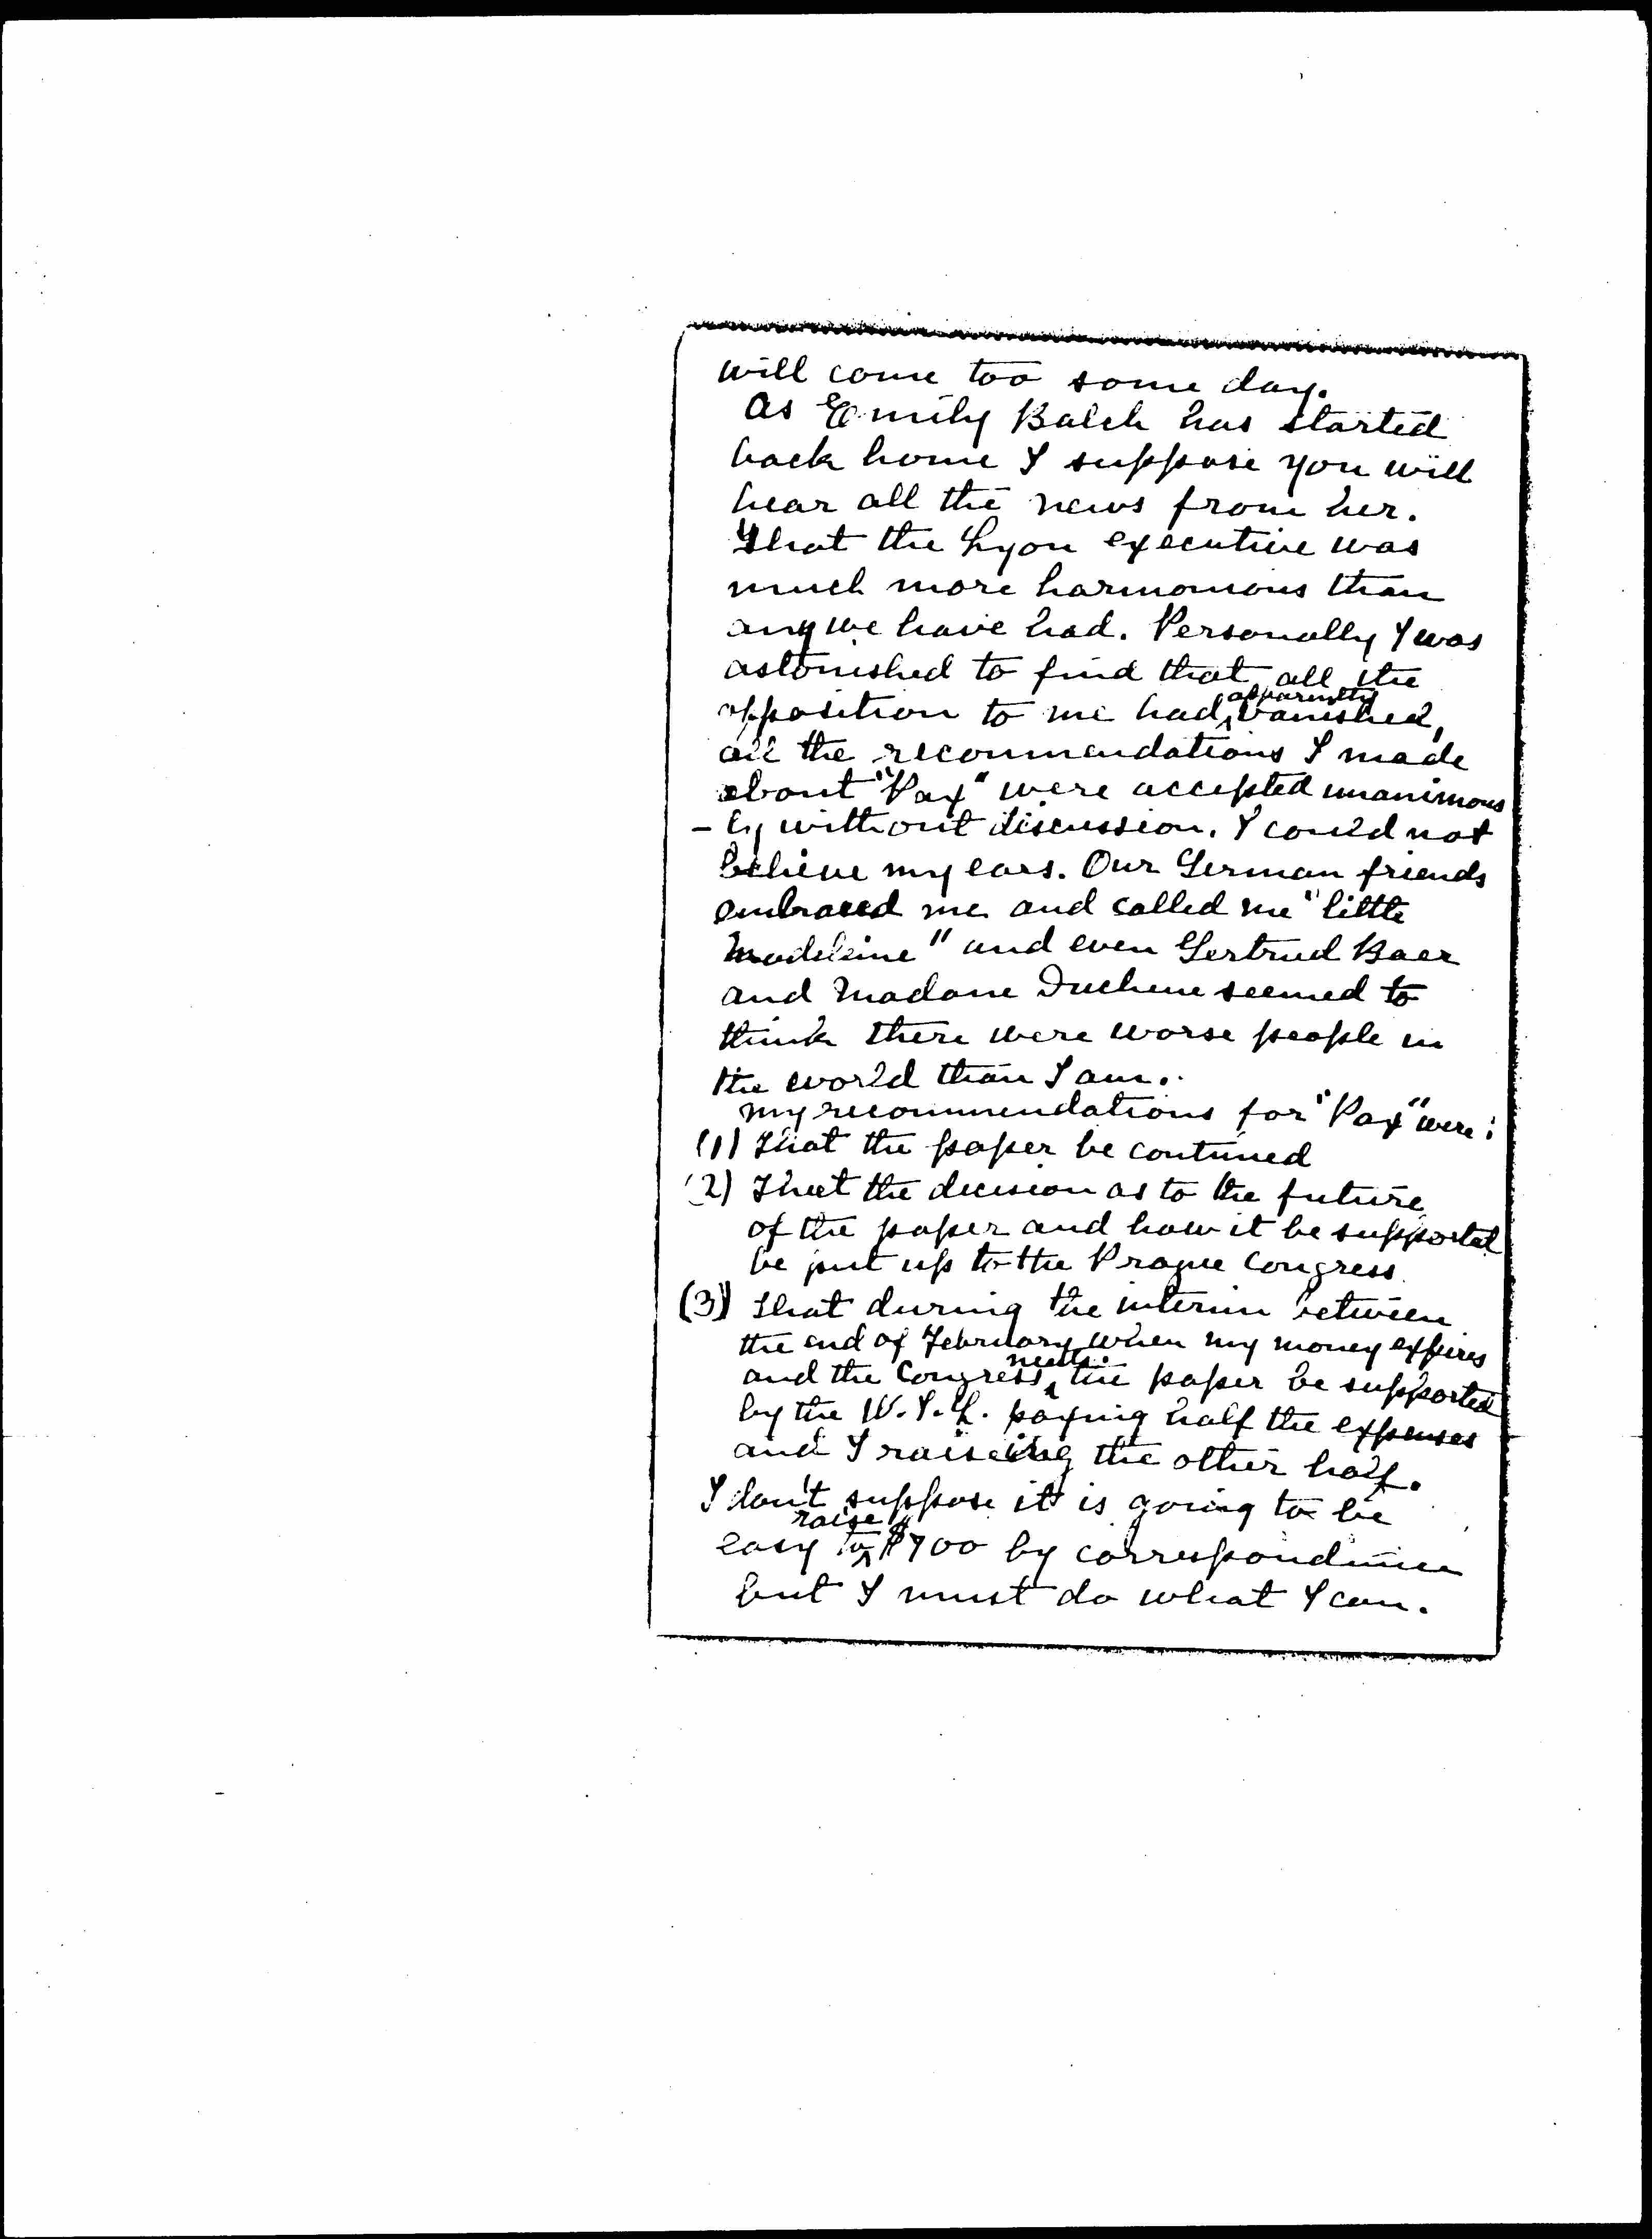 will come too some day.
As Emily Balch has started
back home I suppose you will
hear all the news from her.
That the Lyon executive was
much more harmonious than
any we have had. Personally I was
astonished to find that all the
apparently
opposition to me had vanished,
all the recommendations I made
about "Pax" were accepted unanimous
- ly without discussion. I could not
believe my ears. Our German friends
embraced me and called me "little
Madeleine" and even Gertrud Baer
and Madame Duchene seemed to
think there were worse people in
the world than I am.
My recommendations for "Pax" were:
(1) That the paper be continued
(2) That the decision as to the future
of the paper and how it be supported
be put up to the Prague Congress
(3) That during the interim between
the end of February when my money expires
meets
and the Congress the paper be supported
by the W.I.L. paying half the expenses
and I raising the other half.
I don't suppose it is going to be
raise
easy to $700 by correspondence
but I must do what I can.